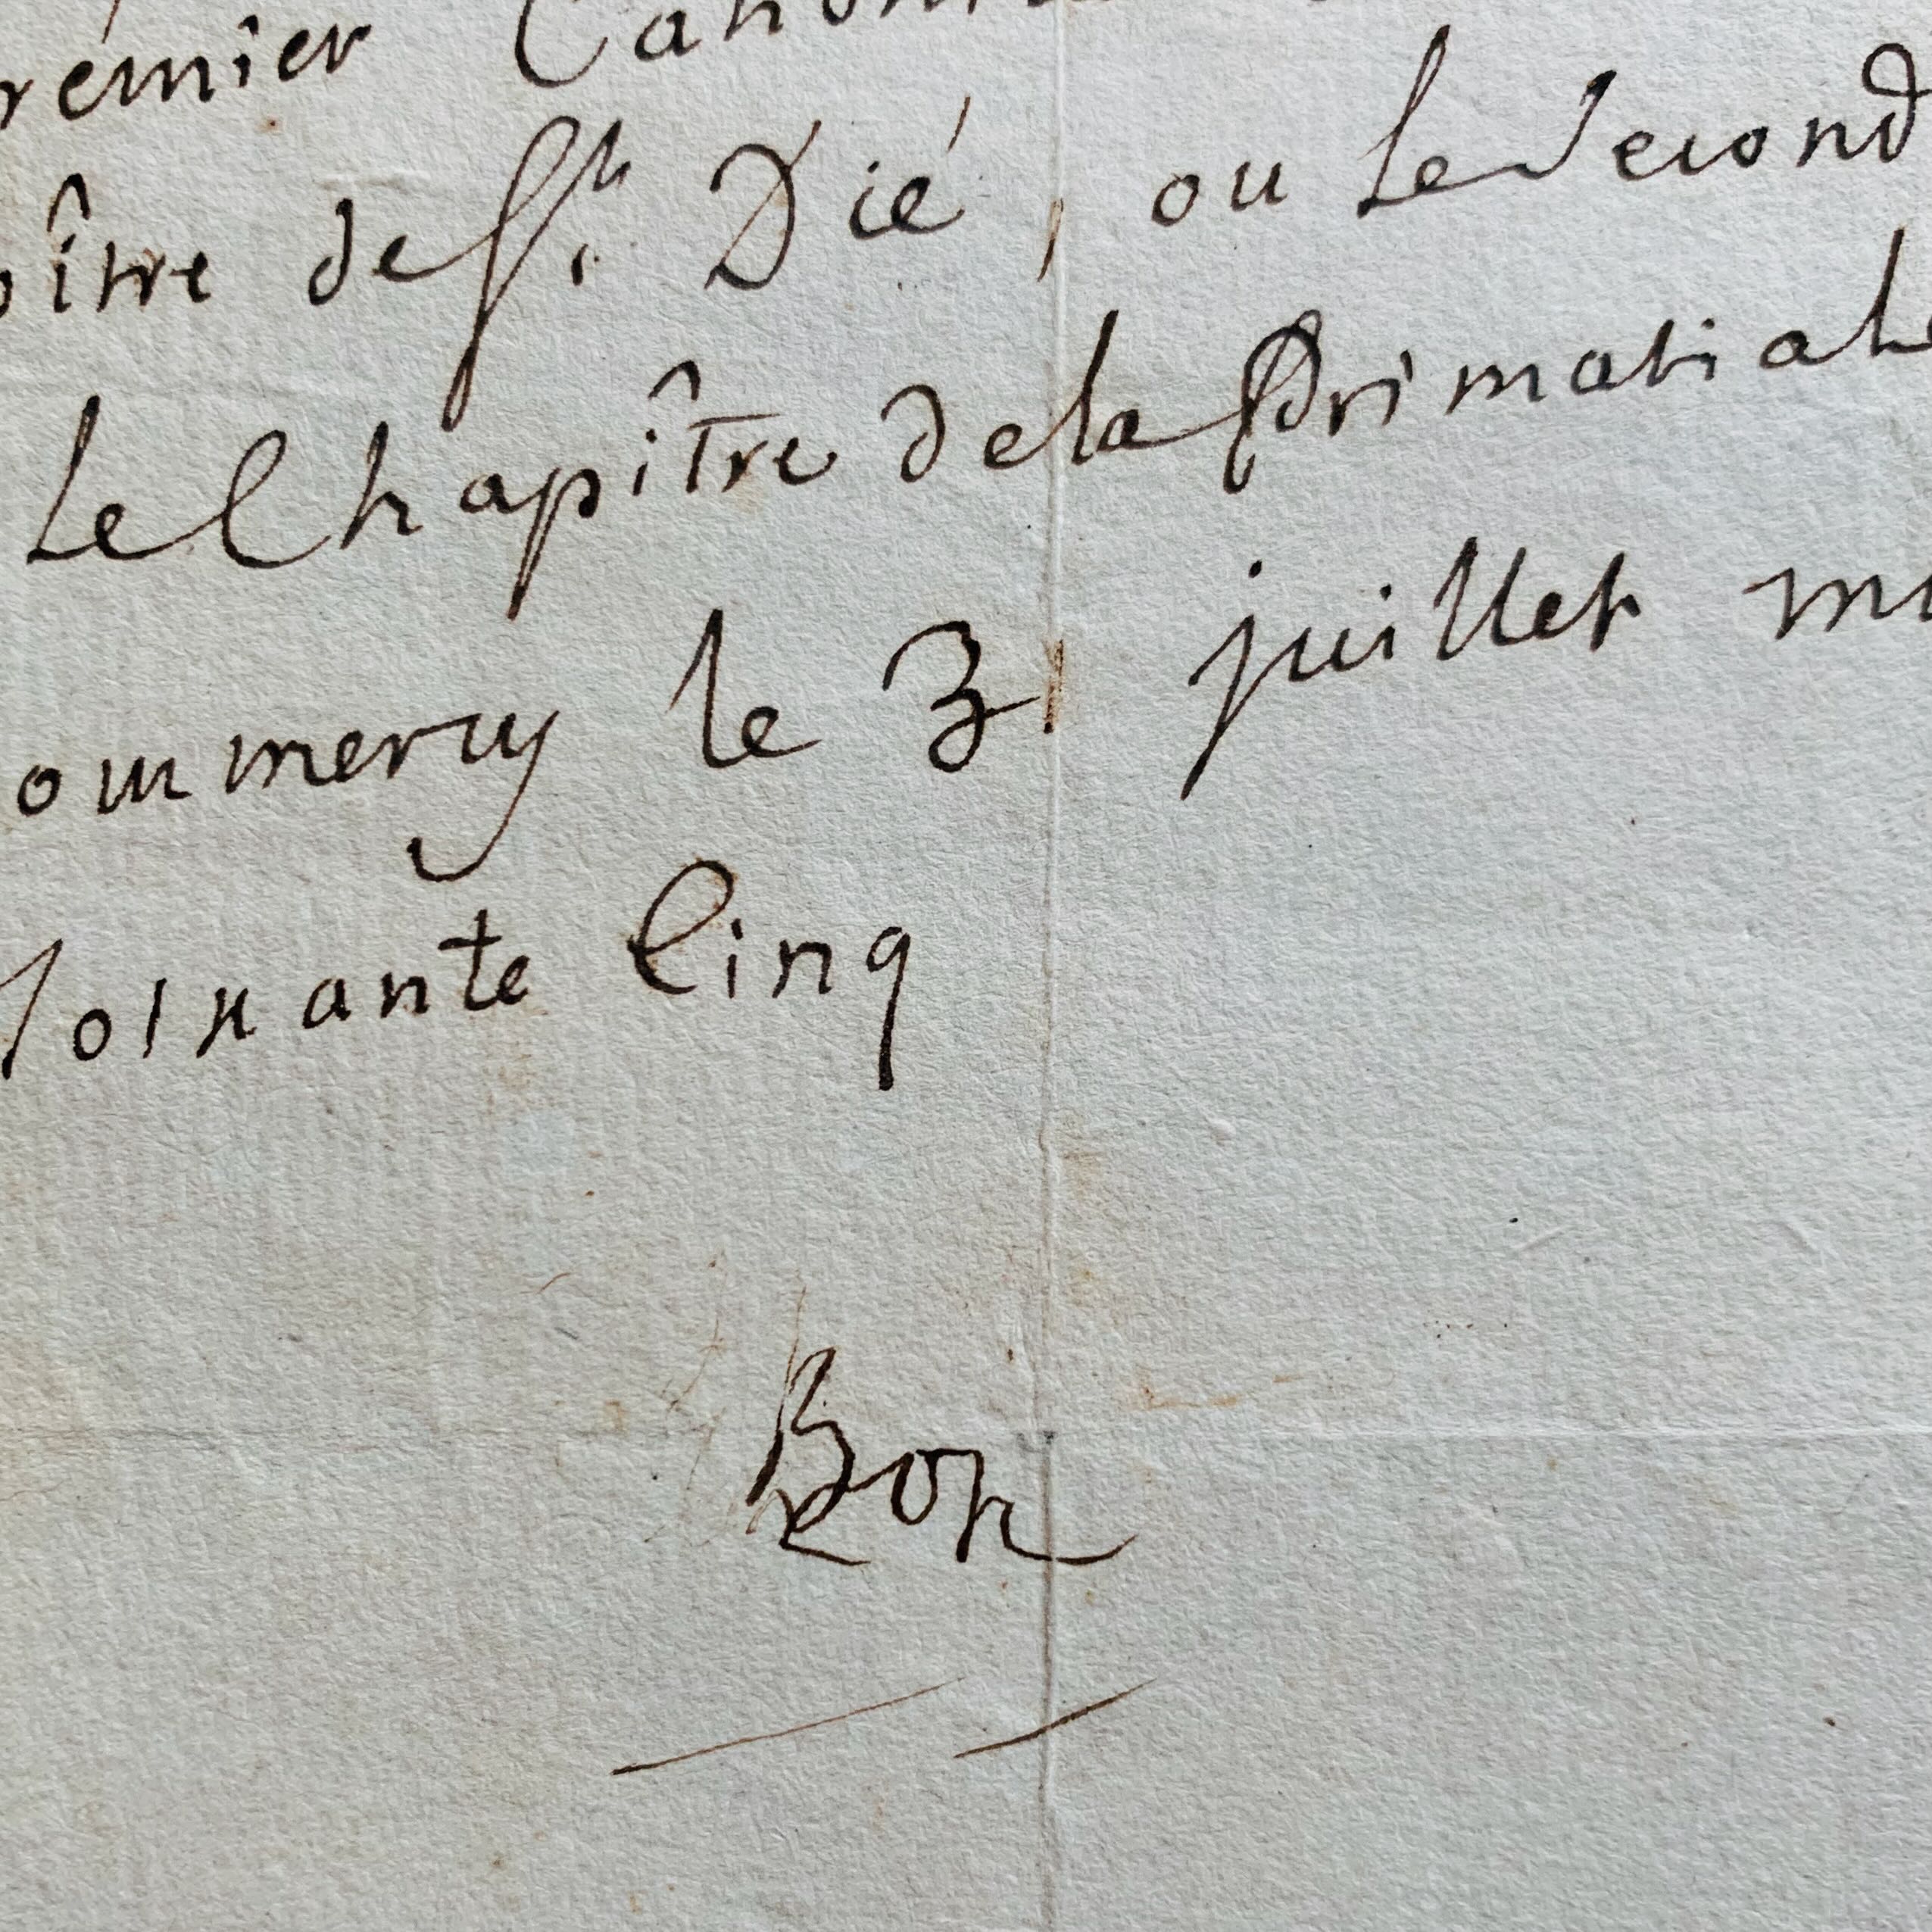 remier Canoni
oître de St. Dié, ou le second
le Chapître de la Primatiale
ommercy le 31 juillet mi
soixante Cinq
Bon